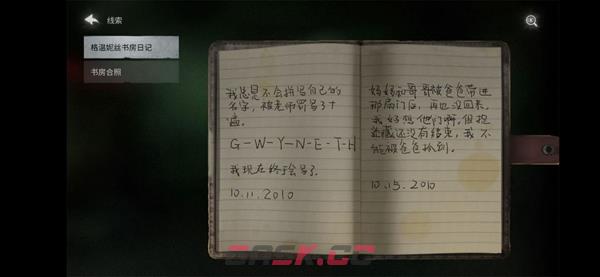 线索
格温妮丝书房日记
书房合照
我总是不会拼写自己的
名字，被老师罚写了十
遍。
G-W-Y-N-E-T-H
我现在终于会写了。
10.11.2010
妈妈和哥哥被爸爸带进
那扇门后，再也没回来。
我好想他们啊。但捉
迷藏还没有结束，我不
能被爸爸找到。
10.15.2010